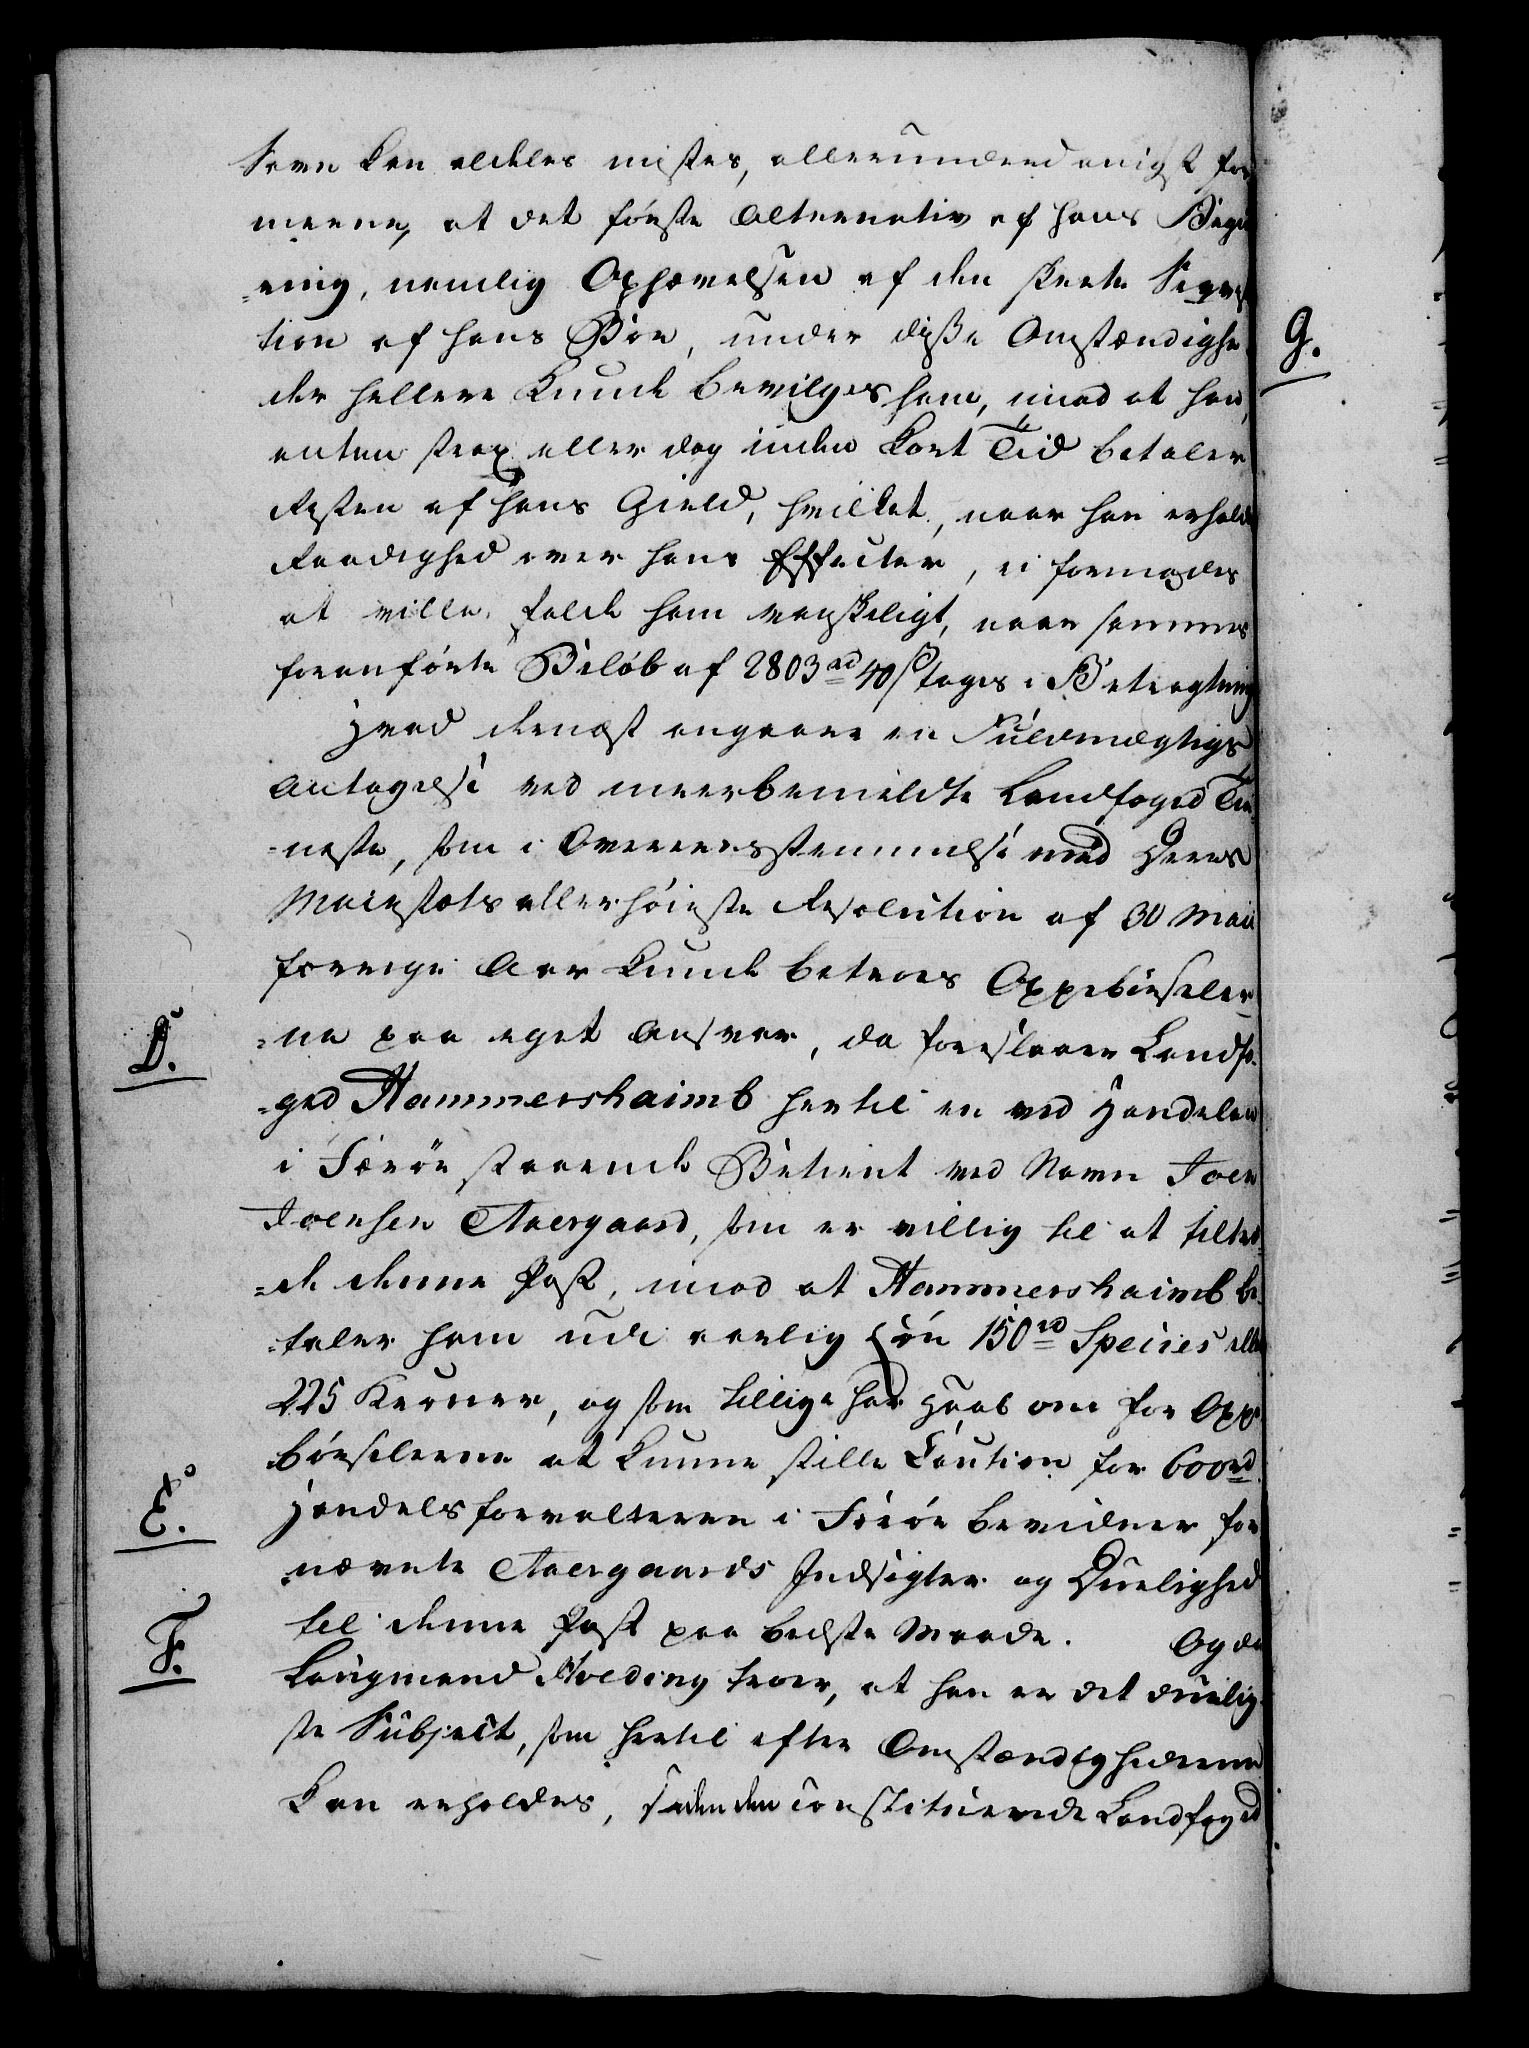 Sawn kan aldeles mistes, allerunderdanigst for
meene, at det første Alternativ af hans Begie
=ring, nemlig Ophævelsen af den skeete Seqvestra
tion af hans Boe, under disse Omstændighe
der hellere kunde bevilges ham, mod at han,
enten strax eller dog inden kort Tid betaler
Resten af hans Gield, hvilket, naar han erholder
Raadighed over hans Effecter, ei formodes
at ville falde ham vanskeligt, naar sammes
foranførte Beløb af 2803 rd 40 ß tages i Betragtning
Hvad dernæst angaaer en Fuldmægtigs
Antagelse ved meerbemeldte Landfoged Tie
=neste, som i Overeensstemmelse med Deres
Majestæts allerhøieste Resolution af 30 Maii
forrige Aar kunde betroes Oppebørseler
=ne paa eget Ansvar, da foreslaaer Landfo
D.
=ged Hammershaimb hertil en ved Handelen
i Færøe staaende Betient ved Navn Joen
Joensen Aaergaard, som er villig til at tiltræ
=de denne Post, imod at Hammershaimb be
=taler ham udi aarlig Løn 150 rd Species eller
225 Kroner, og som tillige har Haab om for Oppe
børselerne at kunne stille Caution for 600 rd.
E.
Handelsforvalteren i Færøe bevidner for
nævnte Aaergaards Indsigter og Duelighed
til denne Post paa bedste Maade. Og da
F.
Laugmand Floeding troer, at han er det duelig
ste Subject, som hertil efter Omstændighederne
kan erholdes, saa den constituerede Landfoged
G.